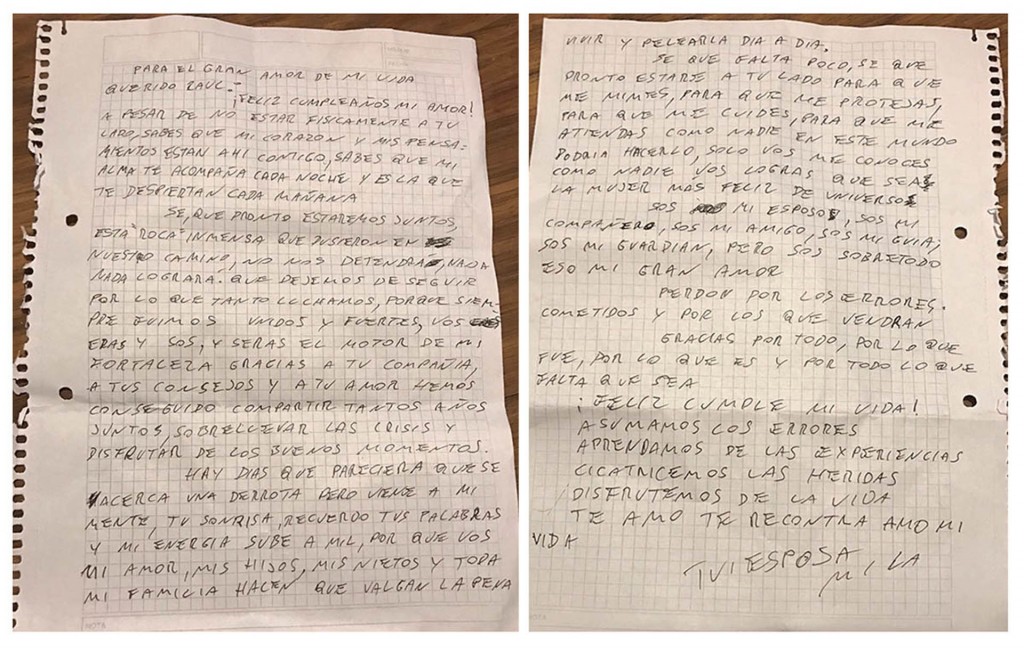 PARA EL GRAN AMOR DE MI VIDA
QUERIDO RAUL.
¡FELIZ CUMPLEAÑOS MI AMOR!
A PESAR DE NO ESTAR FISICAMENTE A TU
LADO, SABES QUE MI CORAZON Y MIS PENSA-
MIENTOS ESTAN AHI CONTIGO, SABES QUE MI
ALMA TE ACOMPAÑA CADA NOCHE Y ES LA QUE
TE DESPIERTAN CADA MAÑANA
SE, QUE PRONTO ESTAREMOS JUNTOS,
ESTA "ROCA" INMENSA QUE PUSIERON EN
NUESTRO CAMINO, NO NOS DETENDRA, NADA
NADA LOGRARA. QUE DEJEMOS DE SEGUIR
POR LO QUE TANTO LUCHAMOS, PORQUE SIEM-
PRE FUIMOS UNIDOS Y FUERTES, VOS
ERAS Y SOS, Y SERAS EL MOTOR DE MI
FORTALEZA GRACIAS A TU COMPAÑIA,
A TUS CONSEJOS Y A TU AMOR HEMOS
CONSEGUIDO COMPARTIR TANTOS AÑOS
JUNTOS, SOBRELLEVAR LAS CRISIS Y
DISFRUTAR DE LOS BUENOS MOMENTOS.
HAY DIAS QUE PARECIERA QUE SE
ACERCA UNA DERROTA PERO VIENE A MI
MENTE, TU SONRISA, RECUERDO TUS PALABRAS
Y MI ENERGIA SUBE A MIL, POR QUE VOS
MI AMOR, MIS HIJOS, MIS NIETOS Y TODA
MI FAMILIA HACEN QUE VALGAN LA PENA
NOTA
VIVIR Y PELEARLA DIA A DIA.
SE QUE FALTA POCO, SE QUE
PRONTO ESTARE A TU LADO PARA QUE
ME MIMES, PARA QUE ME PROTEJAS,
PARA QUE ME CUIDES, PARA QUE ME
ATIENDAS COMO NADIE EN ESTE MUNDO
PODRIA HACERLO, SOLO VOS ME CONOCES
COMO NADIE VOS LOGRAS QUE SEA
LA MUJER MAS FELIZ DE UNIVERSO
SOS MI ESPOSO, SOS MI
COMPAÑERO, SOS MI AMIGO, SOS MI GUIA,
SOS MI GUARDIAN, PERO SOS SOBRETODO
ESO MI GRAN AMOR
PERDON POR LOS ERRORES.
COMETIDOS Y POR LOS QUE VENDRAN
GRACIAS POR TODO, POR LO QUE
FUE, POR LO QUE ES Y POR TODO LO QUE
FALTA QUE SEA
¡FELIZ CUMPLE MI VIDA!
ASUMAMOS LOS ERRORES
APRENDAMOS DE LAS EXPERIENCIAS
CICATRICEMOS LAS HERIDAS
¡DISFRUTEMOS DE LA VIDA
TE AMO TE RECONTRA AMO MI
VIDA
TU ESPOSA
MILA